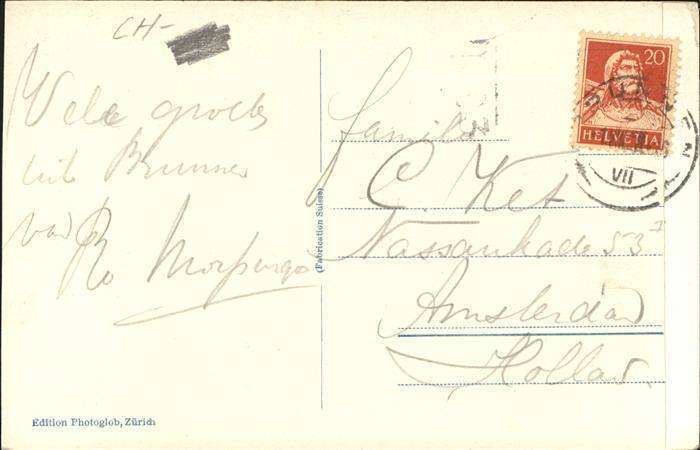 CH-
Vele groeten
uit Brunnen
van
Ro Morpurgo
Familie
C. Ket
Nassaukade 53 I
Amsterdam
Holland.
20
HELVETIA
VII
(Fabrication Suisse)
Edition Photoglob, Zürich